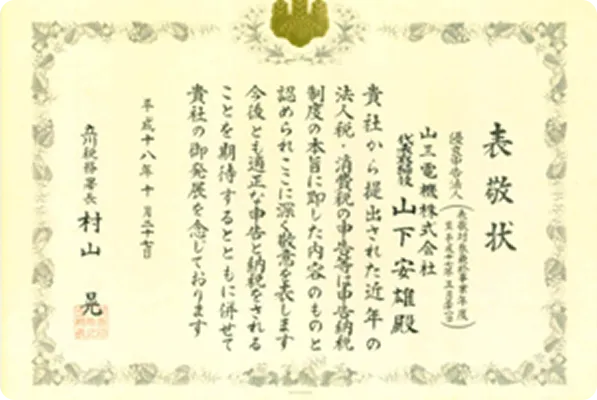 表敬状
優良申告法人
山王電機株式会社
代表取締役 山下安雄殿
貴社から提出された近年の
法人税・消費税の申告等は申告納税
制度の本旨に即した内容のものと
認められここに深く敬意を表します
今後とも適正な申告と納税をされる
ことを期待するとともに併せて
貴社の御発展を念じております
平成十八年十月二十七日
立川税務署長 村山 晃